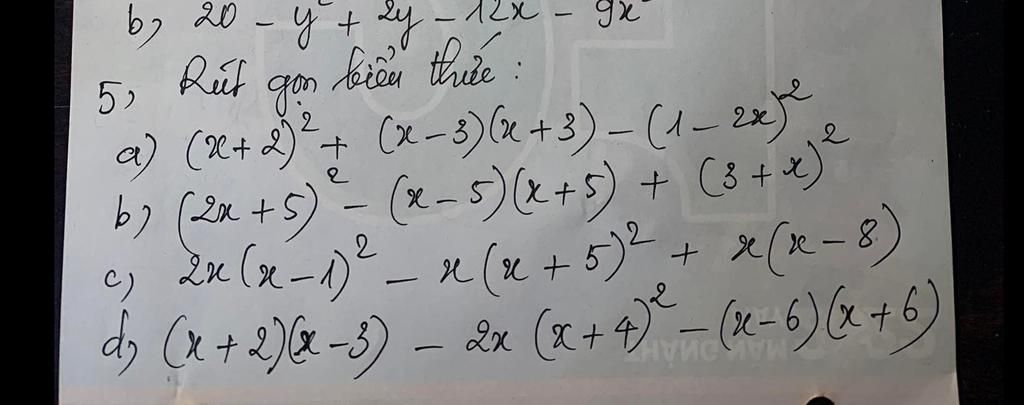 b) 20 - y² + 2y - 12x - 9x²
5) Rút gọn biểu thức :
a) (x+2)² + (x-3)(x+3) - (1-2x)²
b) (2x+5)² - (x-5)(x+5) + (3+x)²
c) 2x(x-1)² - x(x+5)² + x(x-8)
d) (x+2)(x-3) - 2x(x+4)² - (x-6)(x+6)